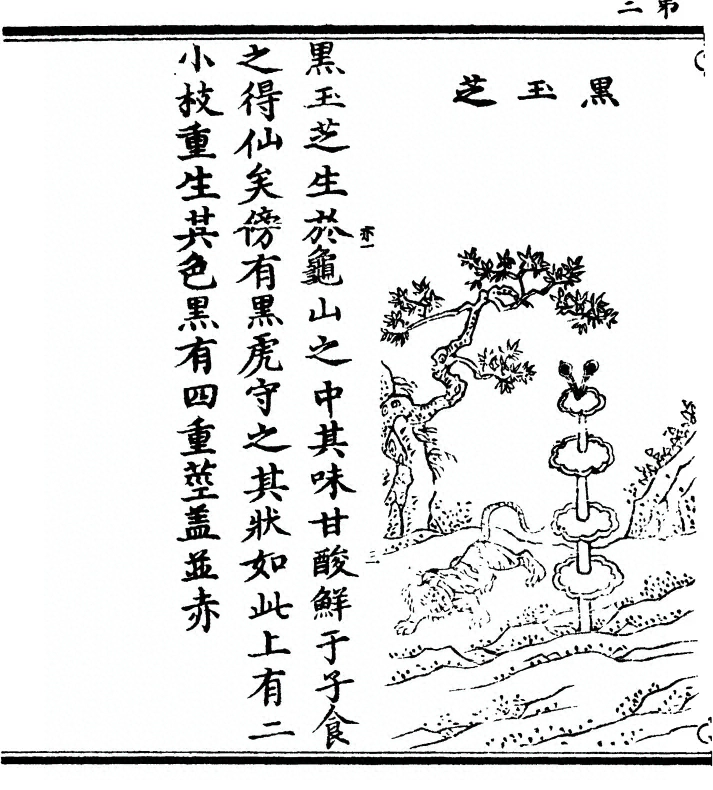 弟二
黑玉芝
黑玉芝生於龜山之中其味甘酸鮮于子食
之得仙矣傍有黑虎守之其狀如此上有二
小枝重生其色黑有四重莖盖並赤